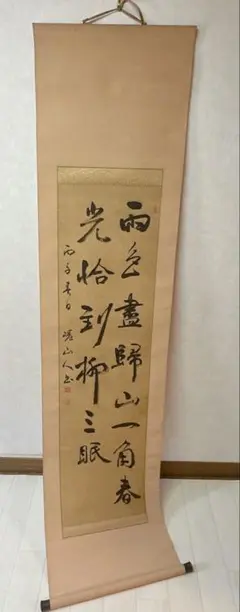 雨色盡歸山一角春
光恰到柳三眠
丙子春日 山人書